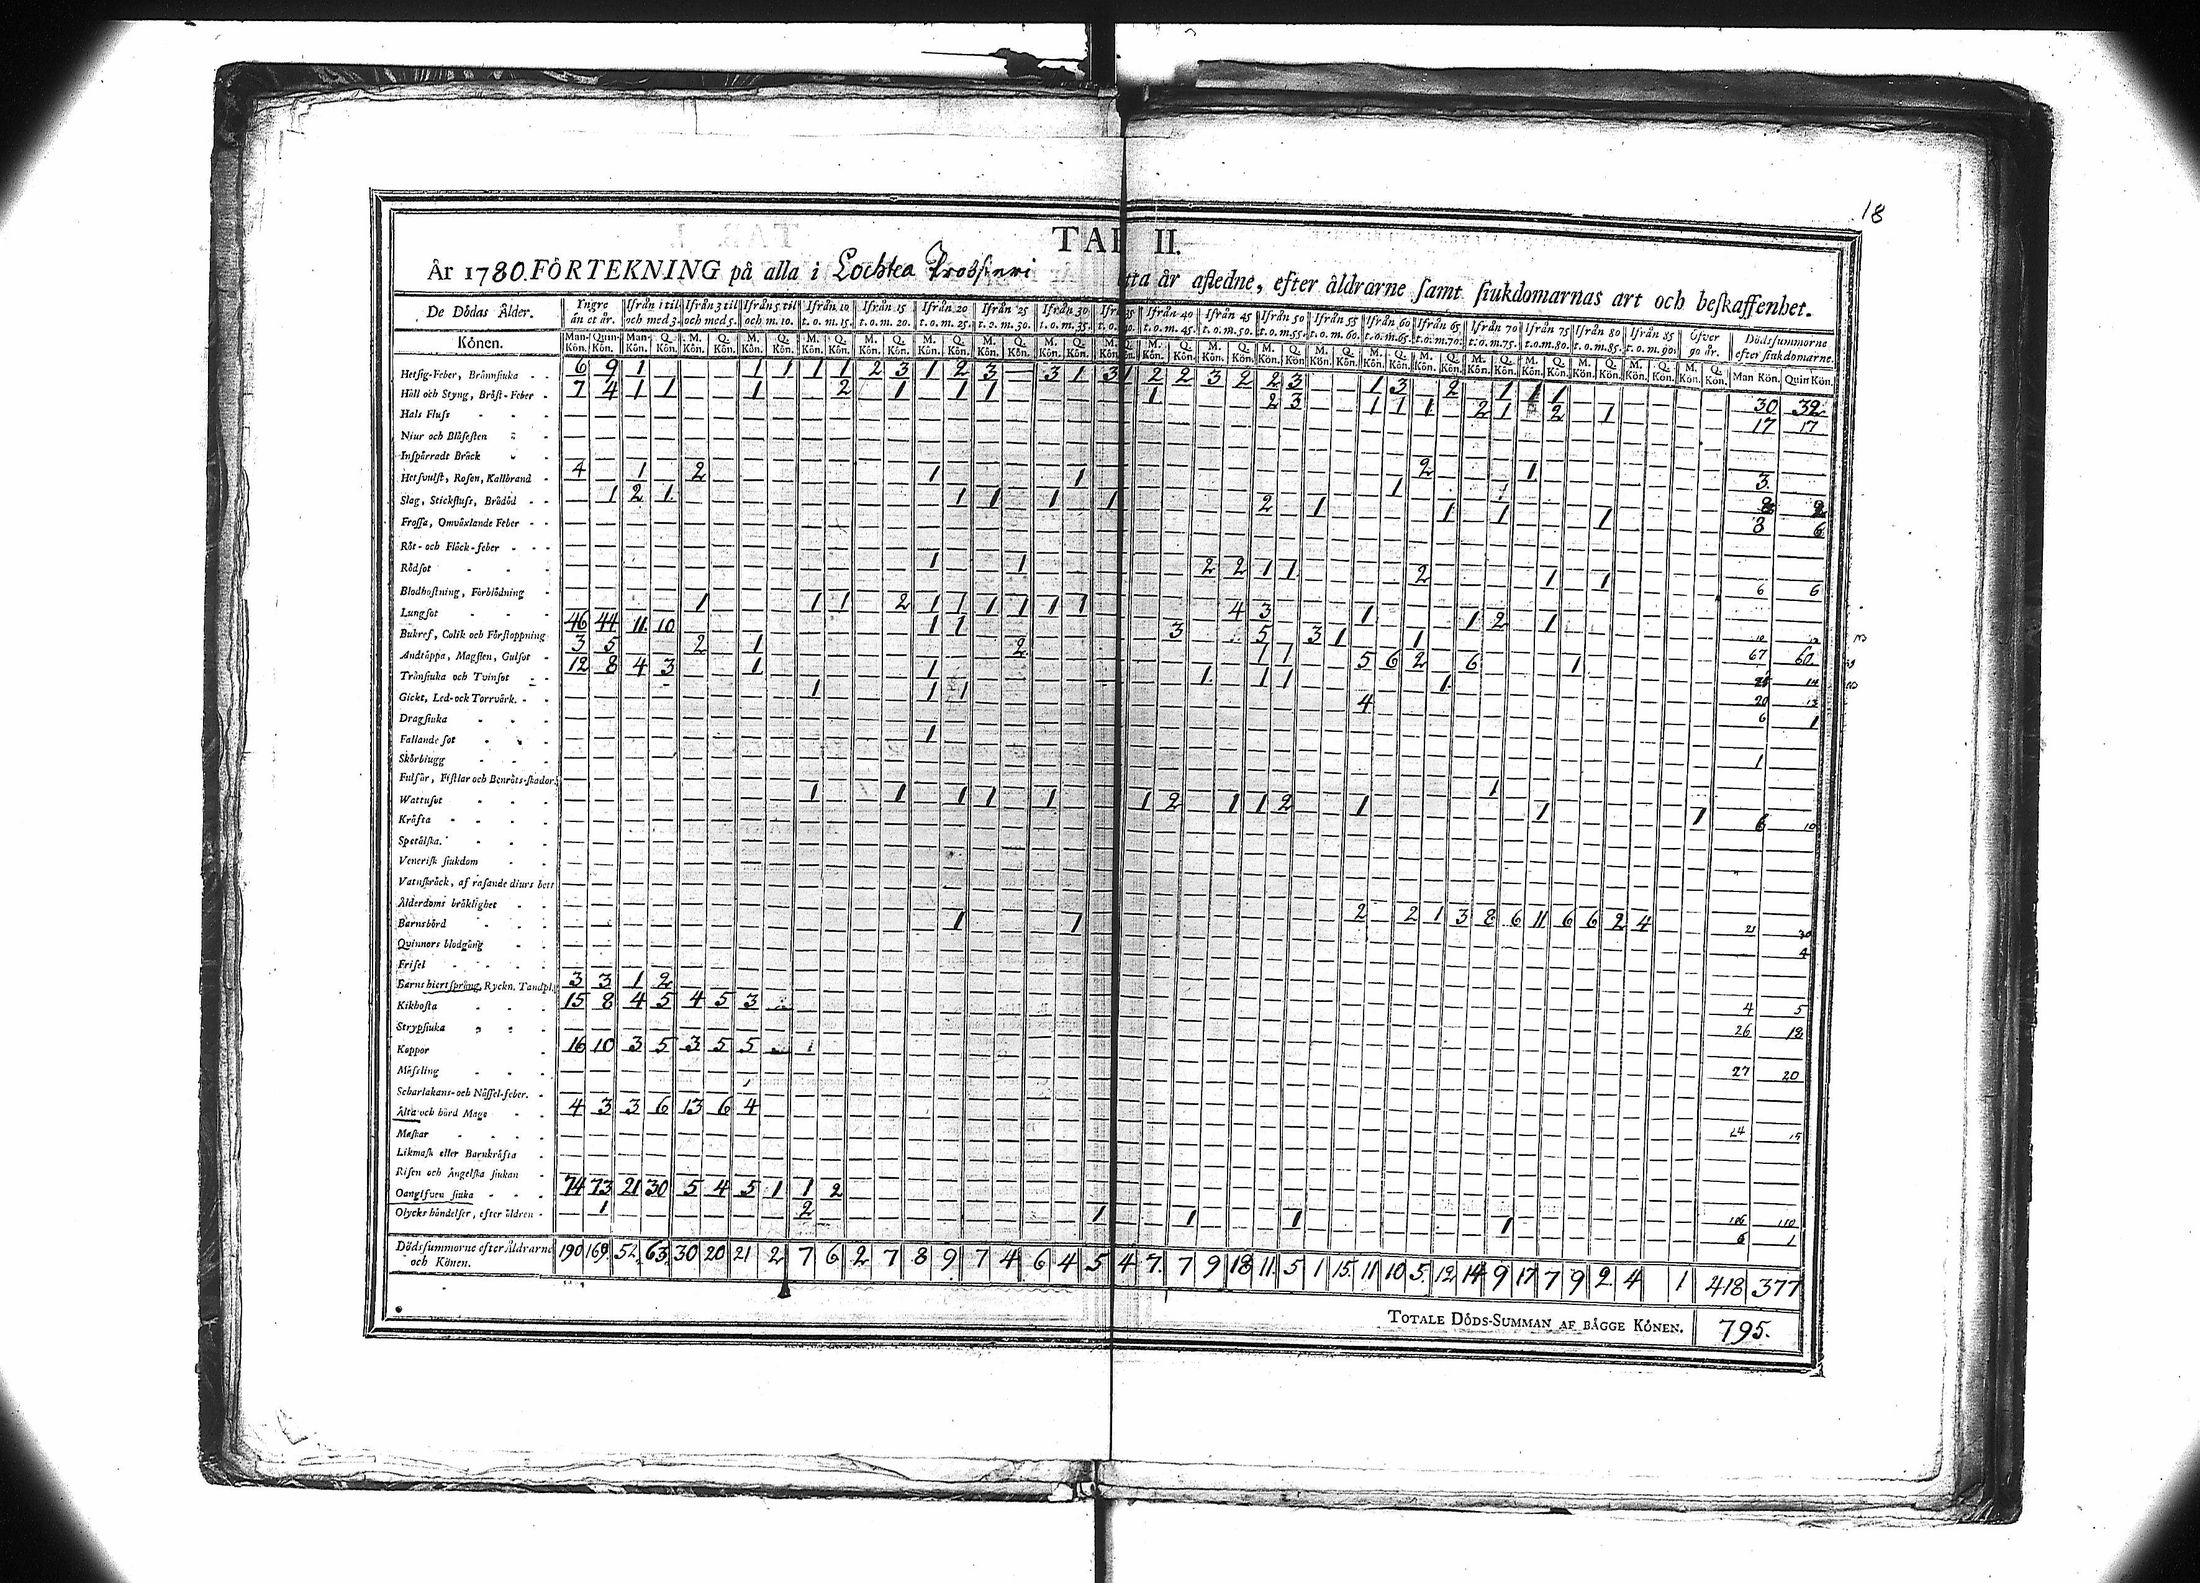 18
TAB II.
År 1780. FÖRTEKNING på alla i Lochtea Probsteri
tta år afledne, efter åldrarne samt siukdomarnas art och beskaffenhet.
De Dödas Ålder. Yngre än et år. Ifrån 1 til och med 3. Ifrån 3 til och med 5. Ifrån 5 til och m. 10. Ifrån 10 t. o. m. 15. Ifrån 15 t. o. m. 20. Ifrån 20 t. o. m. 25. Ifrån 25 t. o. m. 30. Ifrån 30 t. o. m. 35. Ifrån 40 t. o. m. 45. Ifrån 45 t. o. m. 50. Ifrån 50 t. o. m. 55. Ifrån 55 t. o. m. 60. Ifrån 60 t. o. m. 65. Ifrån 65 t. o. m. 70. Ifrån 70 t. o. m. 75. Ifrån 75 t. o. m. 80. Ifrån 80 t. o. m. 85. Ifrån 85 t. o. m. 90. Öfver 90 år. Dödssummorne efter siukdomarne.
Könen. Man-Kön. Quin-Kön. Man-Kön. Q. Kön. M. Kön. Q. Kön. M. Kön. Q. Kön. Man Kön. Quin Kön.
Hetsig-Feber, Brännsiuka 6 9 1 1 1 1 1 2 3 1 2 3 3 1 3 1 2 2 3 2 2 3 1 3 2 1 1 1 30 32
Håll och Styng, Bröst-Feber 7 4 1 1 1 2 1 1 1 1 2 3 1 1 1 2 1 2 1 17 17
Hals Fluss
Niur och Blåsesten
Inspärradt Bråck 3
Hetsvulst, Rosen, Kallbrand 4 1 2 1 1 2 1
Slag, Stickfluss, Brådöd 1 2 1 1 1 1 1 2 1 1 1 1 3 6
Frossa, Omväxlande Feber
Röt- och Fläck-feber
Rödsot 1 1 2 2 1 1 2 1 1 6 6
Blodhostning, Förblödning
Lungsot 1 1 1 2 1 1 1 1 1 1 4 3 1 1 2 1
Bukref, Colik och Förstoppning 46 44 11 10 1 1 3 5 3 1 1 67 60
Andtäppa, Magsten, Gulsot 3 5 2 1 2 1 1 5 6 2 6 1
Trånsiuka och Tvinsot 12 8 4 3 1 1 1 1 1 1 20 13
Gickt, Led-och Torrvärk. 1 1 1 4 6 1
Dragsiuka
Fallande sot 1 1
Skörbiugg
Fulsår, Fistlar och Benröts-skador 1
Wattusot 1 1 1 1 1 1 2 1 1 2 1 1 1 6 10
Kräfta
Spetälska.
Venerisk siukdom
Vatnskräck, af rasande diurs bett
Ålderdoms bräklighet 2 2 1 3 8 6 11 6 6 2 4 21 30
Barnsbörd 1 1
Quinnors blodgång
Frisel
Barns hiertspräng, Ryckn. Tandpl. 3 3 1 2 4 5
Kikhosta 15 8 4 5 4 5 3 26 18
Strypsiuka
Koppor 16 10 3 5 3 5 5 27 20
Messling
Scharlakans- och Nässel-feber.
Älta och hård Mage 4 3 3 6 13 6 4 24 15
Maskar
Likmask eller Barnkräfta
Risen och Ängelska siukan
Oangifven siuka 74 73 21 30 5 4 5 1 1 2 106 110
Olycks händelser, efter äldren 1 2 1 1 1 1 6 1
Dödssummorne efter Åldrarne och Könen. 190 169 52 63 30 20 21 2 7 6 2 7 8 9 7 4 6 4 5 4 7 7 9 18 11 5 1 15 11 10 5 12 14 9 17 7 9 2 4 1 418 377
TOTALE DÖDS-SUMMAN AF BÅGGE KÖNEN. 795.